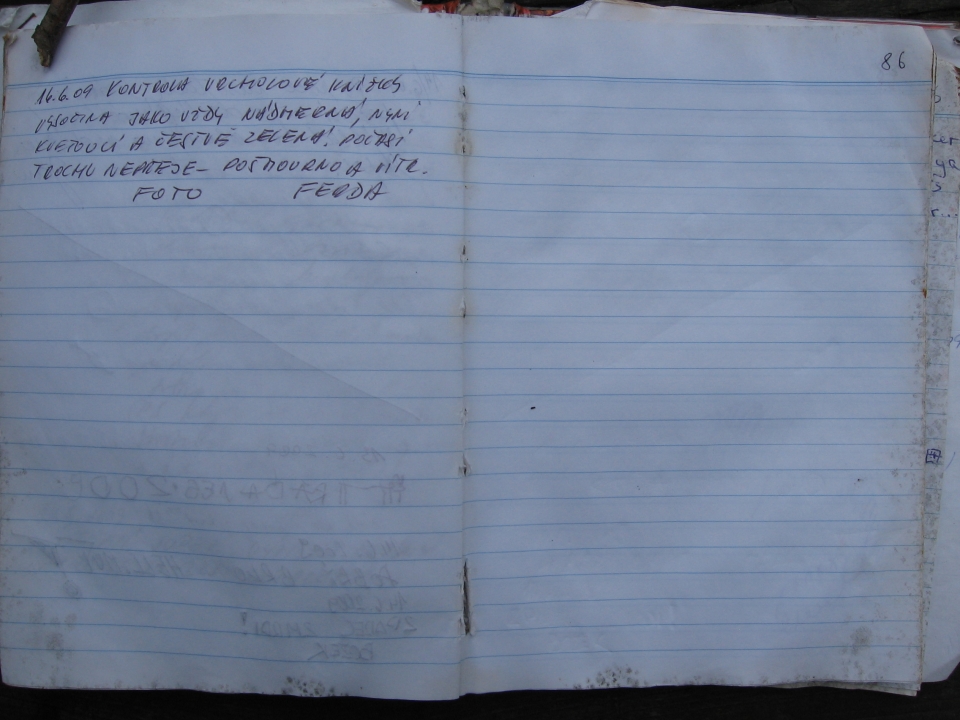 16.6.09 KONTROLA VRCHOLOVÉ KNÍŽKY
VYSOČINA JAKO VŽDY NÁDHERNÁ, NYNÍ
KVETOUCÍ A ČERSTVĚ ZELENÁ! POČASÍ
TROCHU NEPŘEJE - POŠMOURNO A VÍTR.
FOTO FERDA
86